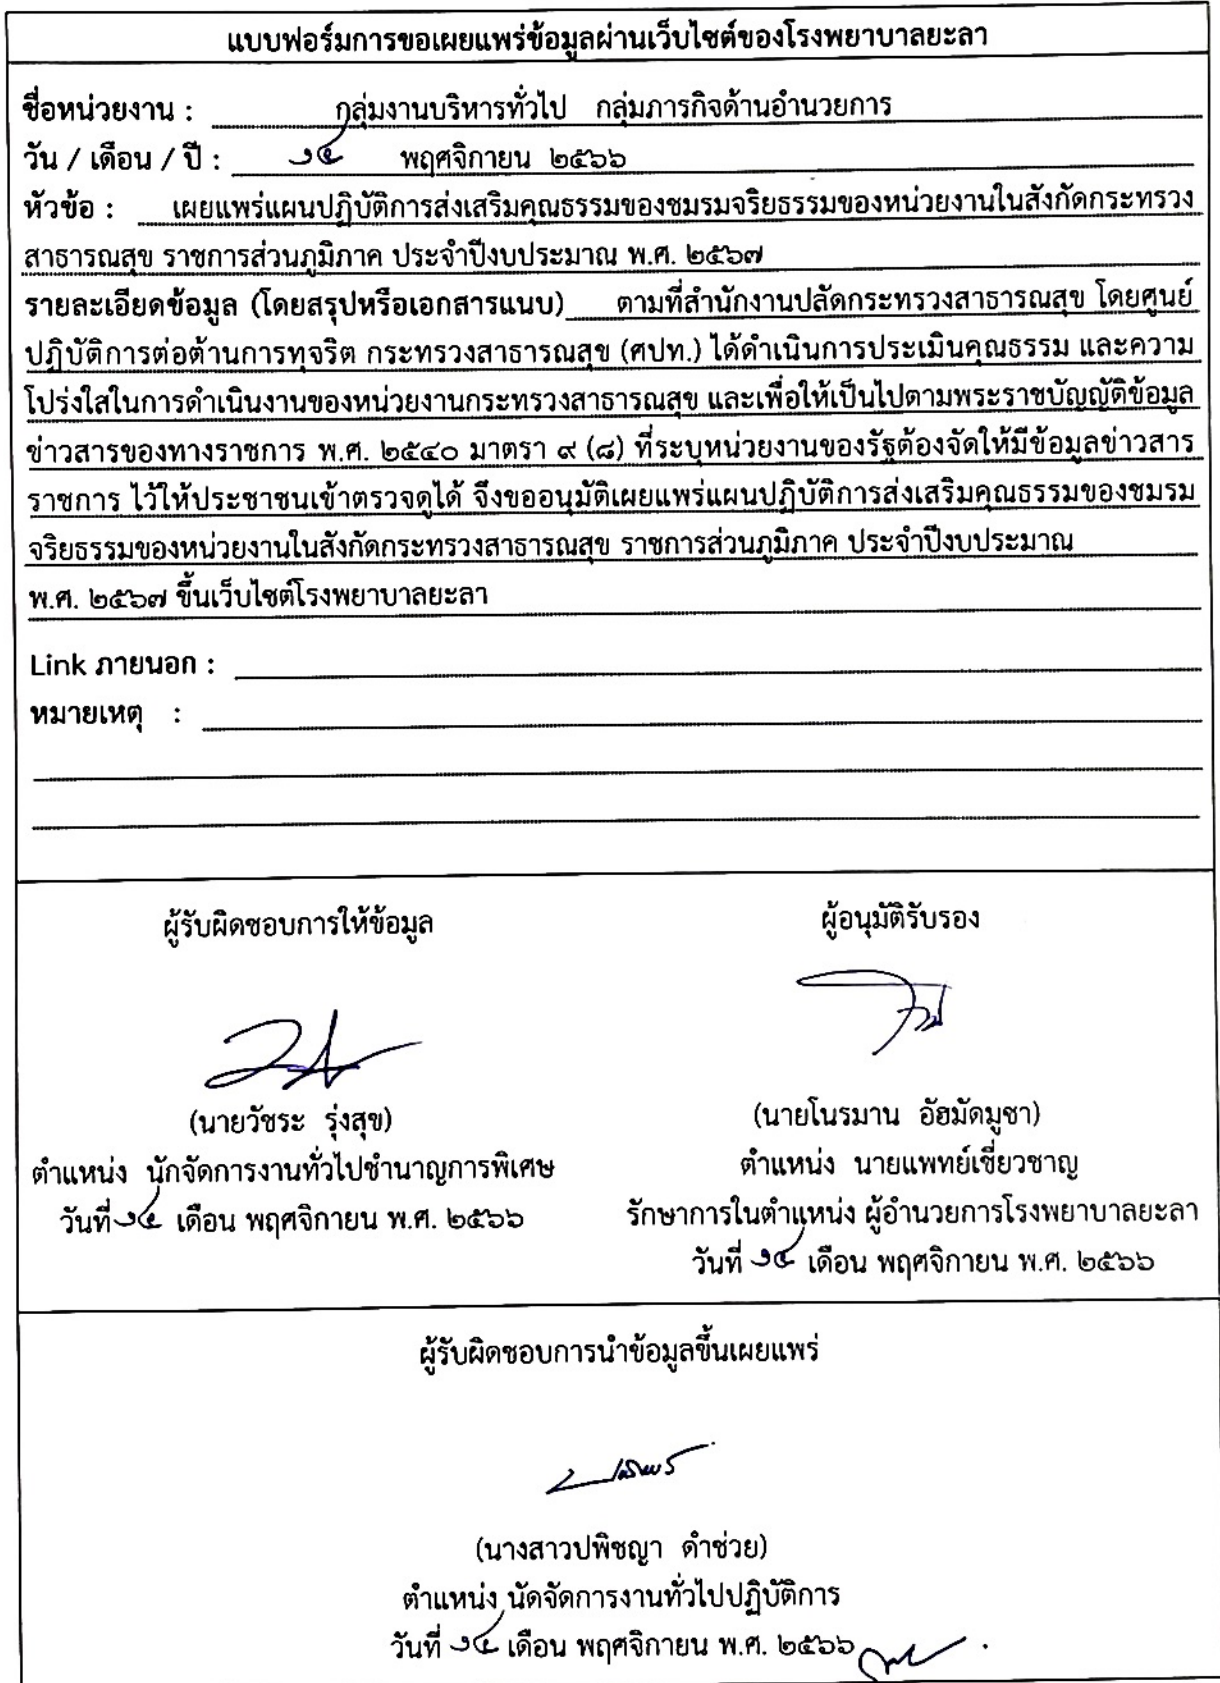 แบบฟอร์มการขอเผยแพร่ข้อมูลผ่านเว็บไซต์ของโรงพยาบาลยะลา
ชื่อหน่วยงาน : กลุ่มงานบริหารทั่วไป กลุ่มภารกิจด้านอำนวยการ
วัน / เดือน / ปี : ๑๔ พฤศจิกายน ๒๕๖๖
หัวข้อ : เผยแพร่แผนปฏิบัติการส่งเสริมคุณธรรมของชมรมจริยธรรมของหน่วยงานในสังกัดกระทรวง
สาธารณสุข ราชการส่วนภูมิภาค ประจำปีงบประมาณ พ.ศ. ๒๕๖๗
รายละเอียดข้อมูล (โดยสรุปหรือเอกสารแนบ) ตามที่สำนักงานปลัดกระทรวงสาธารณสุข โดยศูนย์
ปฏิบัติการต่อต้านการทุจริต กระทรวงสาธารณสุข (ศปท.) ได้ดำเนินการประเมินคุณธรรม และความ
โปร่งใสในการดำเนินงานของหน่วยงานกระทรวงสาธารณสุข และเพื่อให้เป็นไปตามพระราชบัญญัติข้อมูล
ข่าวสารของทางราชการ พ.ศ. ๒๕๔๐ มาตรา ๙ (๘) ที่ระบุหน่วยงานของรัฐต้องจัดให้มีข้อมูลข่าวสาร
ราชการ ไว้ให้ประชาชนเข้าตรวจดูได้ จึงขออนุมัติเผยแพร่แผนปฏิบัติการส่งเสริมคุณธรรมของชมรม
จริยธรรมของหน่วยงานในสังกัดกระทรวงสาธารณสุข ราชการส่วนภูมิภาค ประจำปีงบประมาณ
พ.ศ. ๒๕๖๗ ขึ้นเว็บไซต์โรงพยาบาลยะลา
Link ภายนอก :
หมายเหตุ :
ผู้รับผิดชอบการให้ข้อมูล
(นายวัชระ รุ่งสุข)
ตำแหน่ง นักจัดการงานทั่วไปชำนาญการพิเศษ
วันที่ ๑๔ เดือน พฤศจิกายน พ.ศ. ๒๕๖๖
ผู้อนุมัติรับรอง
(นายโนรมาน อัฮมัดมูซา)
ตำแหน่ง นายแพทย์เชี่ยวชาญ
รักษาการในตำแหน่ง ผู้อำนวยการโรงพยาบาลยะลา
วันที่ ๑๔ เดือน พฤศจิกายน พ.ศ. ๒๕๖๖
ผู้รับผิดชอบการนำข้อมูลขึ้นเผยแพร่
(นางสาวปพิชญา ดำช่วย)
ตำแหน่ง นัดจัดการงานทั่วไปปฏิบัติการ
วันที่ ๑๔ เดือน พฤศจิกายน พ.ศ. ๒๕๖๖